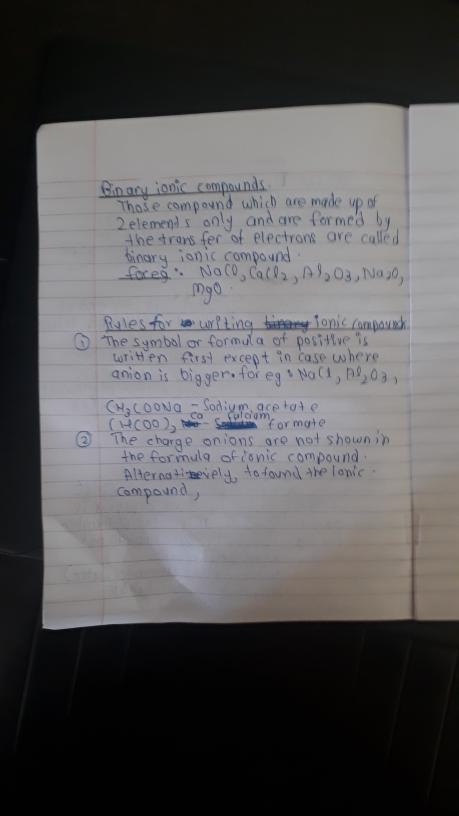 Binary ionic compounds.
Those compound which are made up of
2 elements only and are formed by
the transfer of electrons are called
binary ionic compound.
for eg: NaCl, CaCl2, Al2O3, Na2O,
MgO.
Rules for writing binary ionic compounds
① The symbol or formula of positive is
written first except in case where
anion is bigger. for eg: NaCl, Al2O3,
CH3COONa - Sodium acetate
(HCOO)2 Ca - Calcium formate
② The charge onions are not shown in
the formula of ionic compound.
Alternatively, to found the Ionic.
compound,